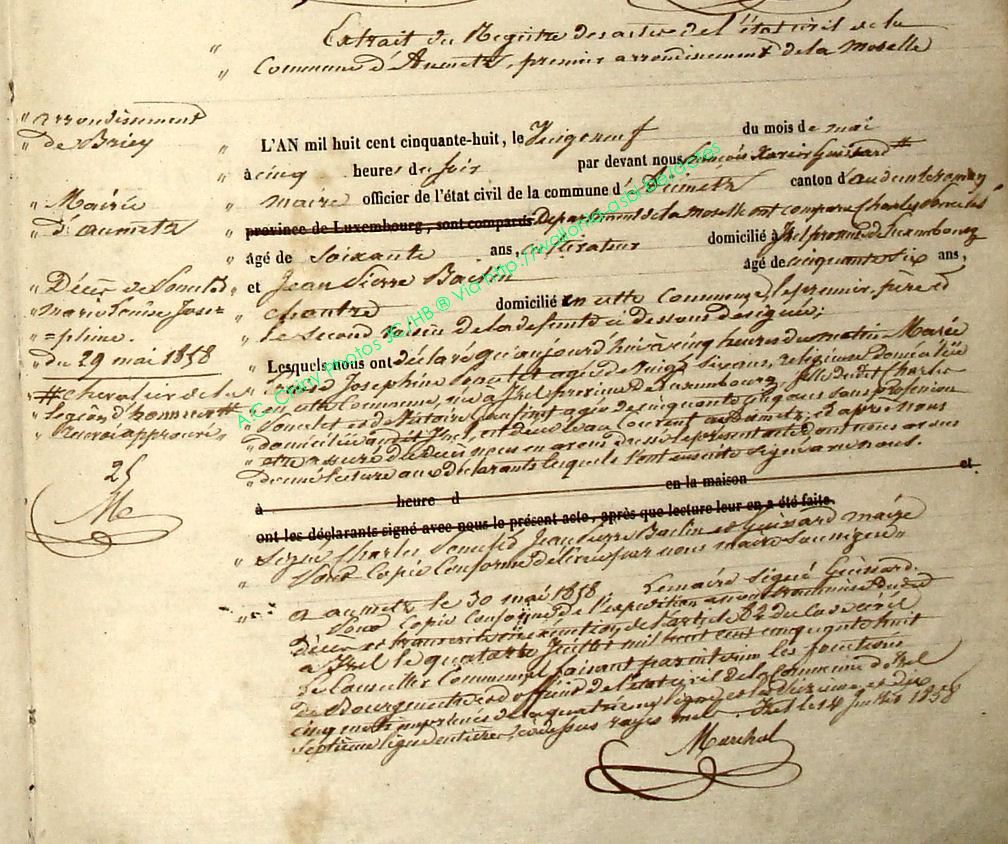 Extrait du Registre des actes de l'état civil de la
Commune d'Aumetz, premier arrondissement de la Moselle
arrondissement
de Briey
Mairie
d'aumetz
Décès de
marie Louise José=
=phine.
du 29 mai 1858
# chevalier de la
légion d'honneur #
Renvoi approuvé
25
M
L'AN mil huit cent cinquante-huit, le Vingt neuf du mois de mai
à cinq heures du soir par devant nous François Xavier Guissard #
maire officier de l'état civil de la commune d'Aumetz canton d'audun le roman
province de Luxembourg, sont comparus Département de la Moselle ont comparu Charles
âgé de soixante ans, cultivateur domicilié à Izel province de Luxembourg
et Jean Pierre Baclin âgé de cinquante six ans,
chantre domicilié en cette commune, le premier, père et
le second voisin de la défunte ci dessous désignée;
Lesquels nous ont déclaré qu'aujourd'hui à cinq heures du matin Marie
Louise Joséphine agée de vingt six ans, religieuse domiciliée
en cette Commune, née à Izel province de Luxembourg fille dudit Charles
et de Victoire agée de cinquante cinq ans sans profession
domiciliée audit Izel, est décédée au Couvent d'Aumetz; et après nous
être assuré du décès nous en avons dressé le présent acte dont nous avons
donné lecture aux déclarants lesquels l'ont ensuite signé avec nous.
à heure d en la maison et
ont les déclarants signé avec nous le présent acte, après que lecture leur en a été faite.
Signé Charles Jean Pierre Baclin et Guissard maire
Pour Copie Conforme délivrée par nous maire soussigné
a aumetz le 30 mai 1858 Le maire signé Guissard.
Pour copie conforme de l'expédition à nous transmise dudit
décès et transcrite en exécution de l'article 82 du Code civil
a Izel le quatorze Juillet mil huit cent cinquante huit
Le Conseiller Communal faisant par interim les fonctions
de Bourgmestre et d'officier de l'état civil de la Commune d'Izel
cinq mots imprimés de la quatrième ligne et les seizième et dix
septième ligne entières ci dessus rayés nul. Izel le 14 Juillet 1858
Marchal
A.C. Chiny Photos JC/HB ® Via http://wallonia.asbl.be/actes